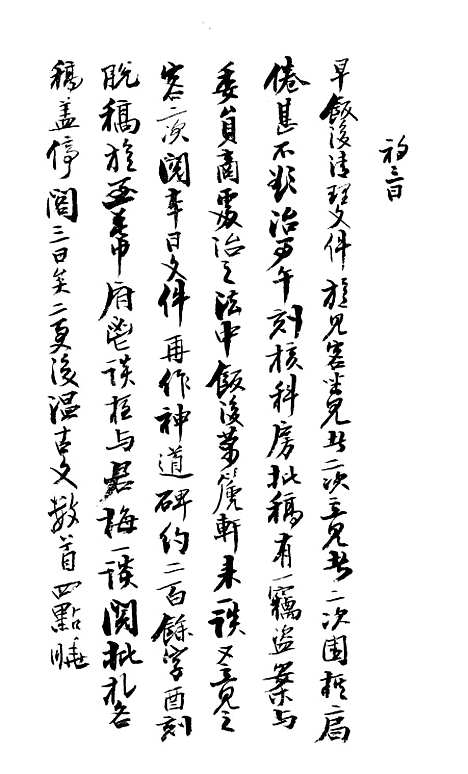 初三日
早飯後清理文件旋見客坐見者二次立見者二次圍棋二局
倦甚不欲治事午刻核科房批稿有一竊盜案与
委員商處治之法中飯後葉麗軒来一談又立見之
客二次閱本日文件再作神道碑約二百餘字酉刻
脫稿旋至幕府鬯談夜与君梅一談閱批札各
稿盖停閣三日矣二更後温古文數首四點睡